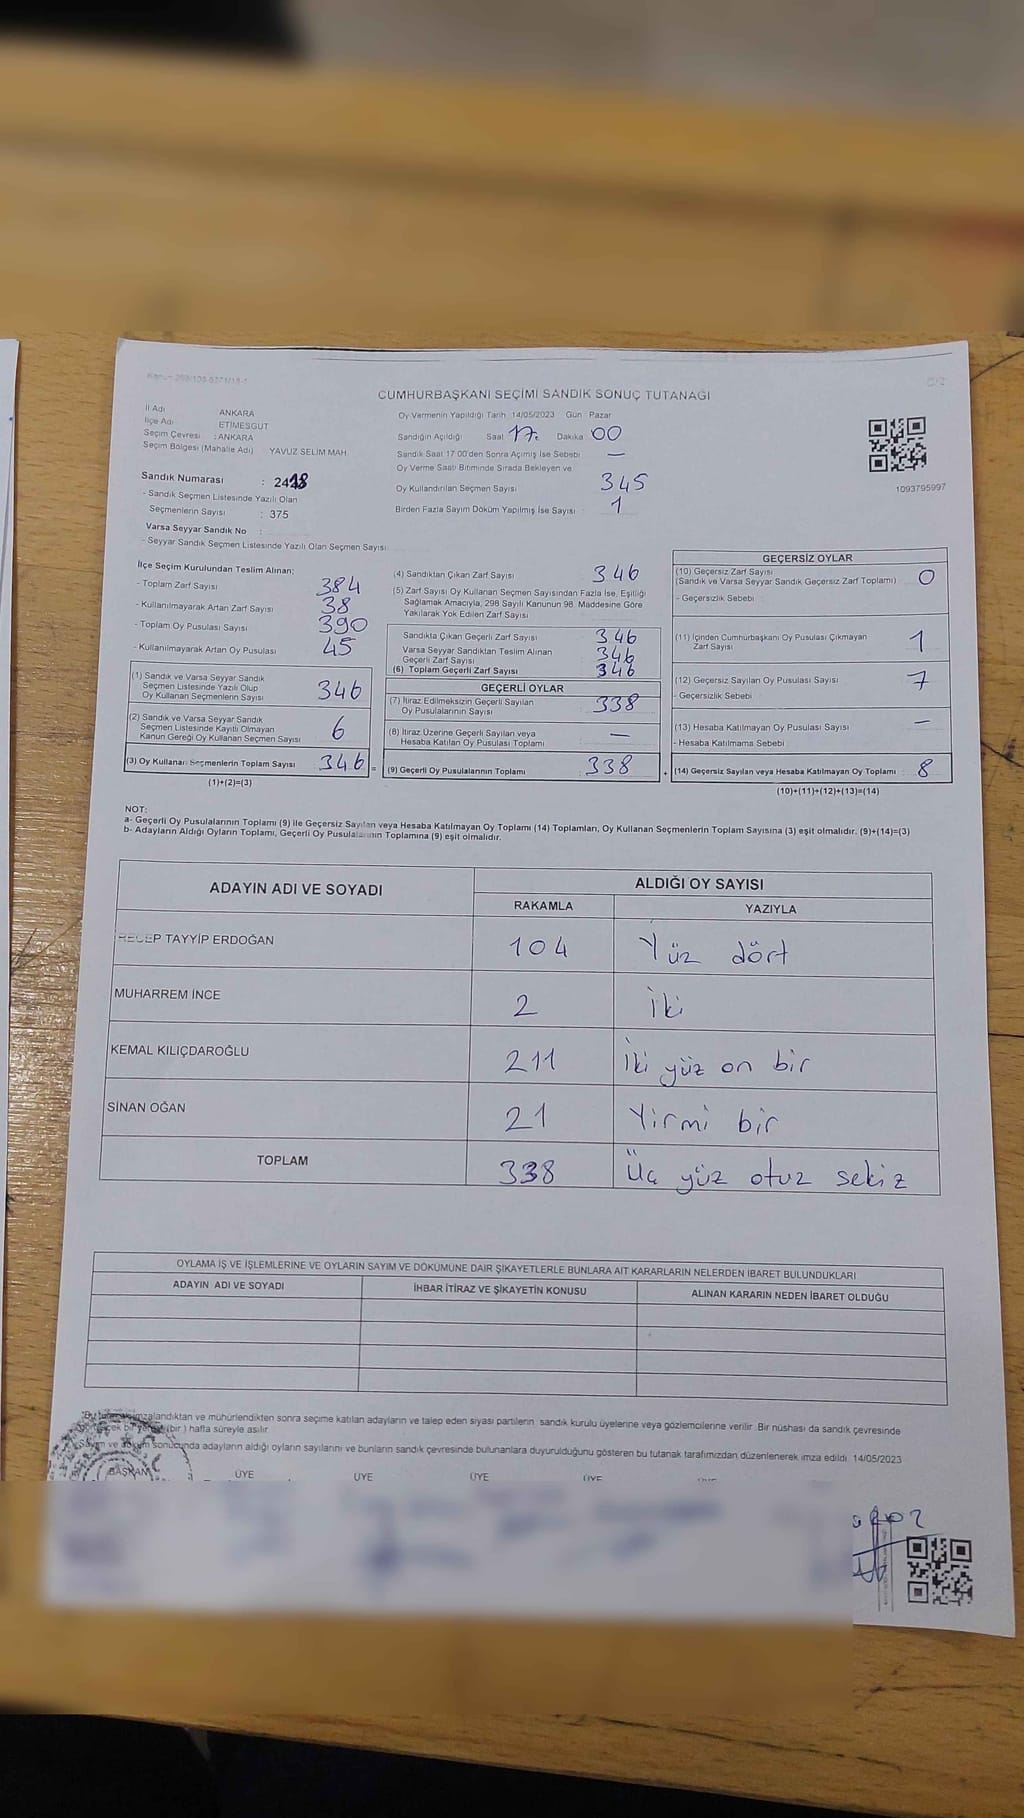 CUMHURBAŞKANI SEÇİMİ SANDIK SONUÇ TUTANAĞI
C/2
İl Adı ANKARA
İlçe Adı ETİMESGUT
Seçim Çevresi : ANKARA
Seçim Bölgesi (Mahalle Adı) YAVUZ SELİM MAH.
Sandık Numarası :
- Sandık Seçmen Listesinde Yazılı Olan
Seçmenlerin Sayısı : 375
Varsa Seyyar Sandık No :
- Seyyar Sandık Seçmen Listesinde Yazılı Olan Seçmen Sayısı
Oy Vermenin Yapıldığı Tarih 14/05/2023 Gün : Pazar
Sandığın Açıldığı Saat 17. Dakika 00
Sandık Saat 17:00'den Sonra Açımış İse Sebebi —
Oy Verme Saati Bitiminde Sırada Bekleyen ve
Oy Kullandırılan Seçmen Sayısı 345
Birden Fazla Sayım Döküm Yapılmış İse Sayısı 1
1093795997
İlçe Seçim Kurulundan Teslim Alınan:
- Toplam Zarf Sayısı 384
- Kullanılmayarak Artan Zarf Sayısı 38
- Toplam Oy Pusulası Sayısı 390
- Kullanılmayarak Artan Oy Pusulası 45
(1) Sandık ve Varsa Seyyar Sandık
Seçmen Listesinde Yazılı Olup
Oy Kullanan Seçmenlerin Sayısı 346
(2) Sandık ve Varsa Seyyar Sandık
Seçmen Listesinde Kayıtlı Olmayan
Kanun Gereği Oy Kullanan Seçmen Sayısı 6
(3) Oy Kullanan Seçmenlerin Toplam Sayısı 346 =
(1)+(2)=(3)
(4) Sandıktan Çıkan Zarf Sayısı 346
(5) Zarf Sayısı Oy Kullanan Seçmen Sayısından Fazla İse, Eşitliği
Sağlamak Amacıyla, 298 Sayılı Kanunun 98. Maddesine Göre
Yakılarak Yok Edilen Zarf Sayısı
Sandıkta Çıkan Geçerli Zarf Sayısı 346
Varsa Seyyar Sandıktan Teslim Alınan
Geçerli Zarf Sayısı 346
(6) Toplam Geçerli Zarf Sayısı 346
GEÇERLİ OYLAR
(7) İtiraz Edilmeksizin Geçerli Sayılan
Oy Pusulalarının Sayısı 338
(8) İtiraz Üzerine Geçerli Sayılan veya
Hesaba Katılan Oy Pusulası Toplamı —
(9) Geçerli Oy Pusulalarının Toplamı : 338 +
GEÇERSİZ OYLAR
(10) Geçersiz Zarf Sayısı
(Sandık ve Varsa Seyyar Sandık Geçersiz Zarf Toplamı) 0
- Geçersizlik Sebebi
(11) İçinden Cumhurbaşkanı Oy Pusulası Çıkmayan
Zarf Sayısı 1
(12) Geçersiz Sayılan Oy Pusulası Sayısı 7
- Geçersizlik Sebebi
(13) Hesaba Katılmayan Oy Pusulası Sayısı —
- Hesaba Katılmama Sebebi
(14) Geçersiz Sayılan veya Hesaba Katılmayan Oy Toplamı : 8
(10)+(11)+(12)+(13)=(14)
NOT:
a- Geçerli Oy Pusulalarının Toplamı (9) ile Geçersiz Sayılan veya Hesaba Katılmayan Oy Toplamı (14) Toplamları, Oy Kullanan Seçmenlerin Toplam Sayısına (3) eşit olmalıdır. (9)+(14)=(3)
b- Adayların Aldığı Oyların Toplamı, Geçerli Oy Pusulalarının Toplamına (9) eşit olmalıdır.
ADAYIN ADI VE SOYADI ALDIĞI OY SAYISI
RAKAMLA YAZIYLA
RECEP TAYYİP ERDOĞAN 104 Yüz dört
MUHARREM İNCE 2 İki
KEMAL KILIÇDAROĞLU 211 İki yüz on bir
SİNAN OĞAN 21 Yirmi bir
TOPLAM 338 Üç yüz otuz sekiz
OYLAMA İŞ VE İŞLEMLERİNE VE OYLARIN SAYIM VE DÖKÜMÜNE DAİR ŞİKAYETLERLE BUNLARA AİT KARARLARIN NELERDEN İBARET BULUNDUKLARI
ADAYIN ADI VE SOYADI İHBAR İTİRAZ VE ŞİKAYETİN KONUSU ALINAN KARARIN NEDEN İBARET OLDUĞU
imzalandıktan ve mühürlendikten sonra seçime katılan adayların ve talep eden siyasi partilerin sandık kurulu üyelerine veya gözlemcilerine verilir. Bir nüshası da sandık çevresinde
(bir) hafta süreyle asılır.
sonucunda adayların aldığı oyların sayılarını ve bunların sandık çevresinde bulunanlara duyurulduğunu gösteren bu tutanak tarafımızdan düzenlenerek imza edildi. 14/05/2023
BAŞKAN ÜYE ÜYE ÜYE ÜYE